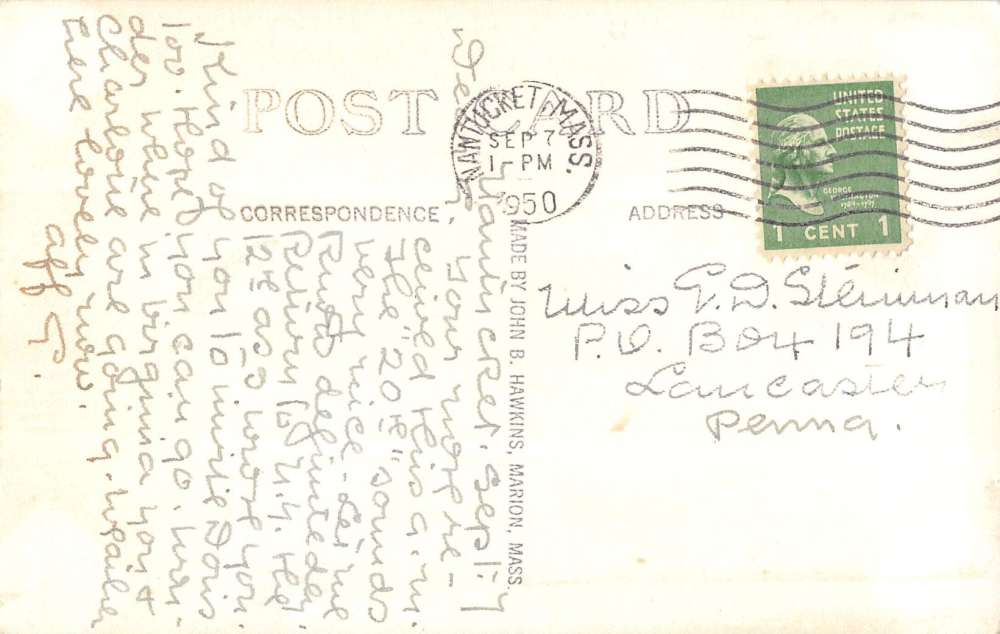 POST CARD
NANTUCKET, MASS.
SEP 7
1 - PM
1950
UNITED
STATES
POSTAGE
GEORGE
WASHINGTON
1 CENT 1
CORRESPONDENCE
ADDRESS
MADE BY JOHN B. HAWKINS, MARION, MASS.
Nantucket. Sept. 7
Your note re-
ceived this a.m
The "20th" sounds
very nice - Let me
know definitely
Return to N.Y. the
12th as I wrote you.
Kind of you to invite Doris
too. Hope you can go. Won-
der where in Virginia you &
Charlotte are going. Weather
here lovely now.
aff G.
Miss G. D. Steinman
P.O. Box 194
Lancaster
Penna.